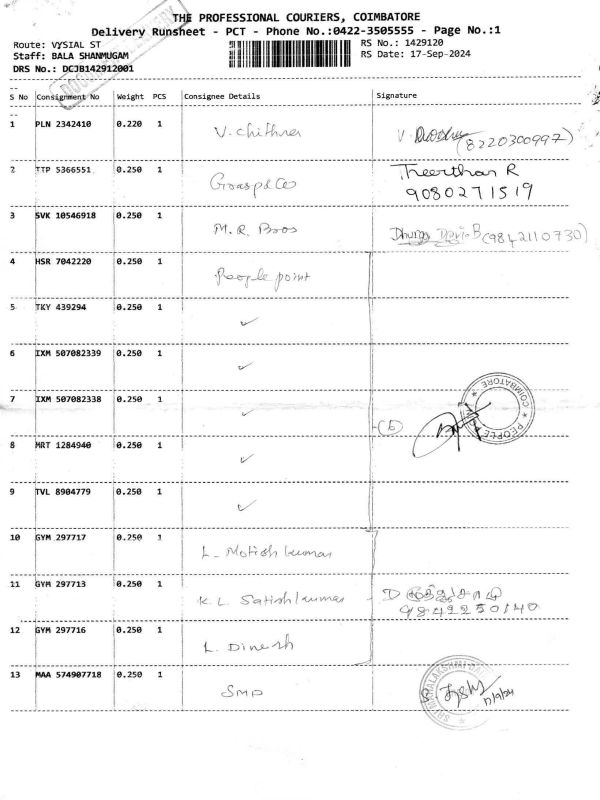 THE PROFESSIONAL COURIERS, COIMBATORE
Delivery Runsheet - PCT - Phone No.:0422-3505555 - Page No.:1
Route: VYSIAL ST
Staff: BALA SHANMUGAM
DRS No.: DCJB142912001
RS No.: 1429120
RS Date: 17-Sep-2024
S No Consignment No Weight PCS Consignee Details Signature
1 PLN 2342410 0.220 1 V. Chithra V. (8220300997)
2 TTP 5366551 0.250 1 Theerthan R
9080271519
3 SVK 10546918 0.250 1 M.R. Bros Dhurga Devi B (9842110730)
4 HSR 7042220 0.250 1 People point
5 TKY 439294 0.250 1 ✓
6 IXM 507082339 0.250 1 ✓
7 IXM 507082338 0.250 1 ✓
PEOPLE * COIMBATORE *
8 MRT 1284940 0.250 1 ✓
9 TVL 8904779 0.250 1 ✓
10 GYM 297717 0.250 1 L. Motish kumar
11 GYM 297713 0.250 1 K.L. Satish kumar D
9842250140
12 GYM 297716 0.250 1 L. Dinesh
13 MAA 574907718 0.250 1 SMP
17/9/24